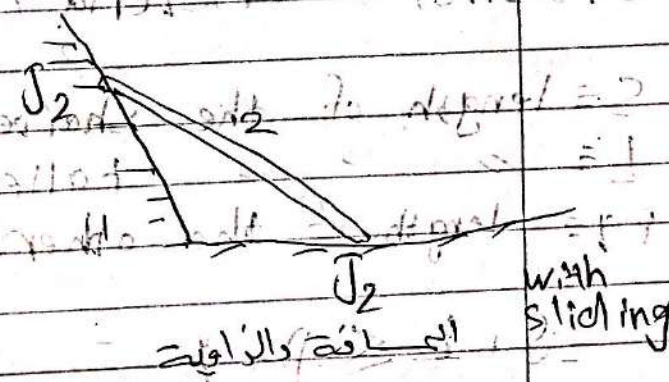 J2
2
J2
with
sliding
المسافة والزاوية